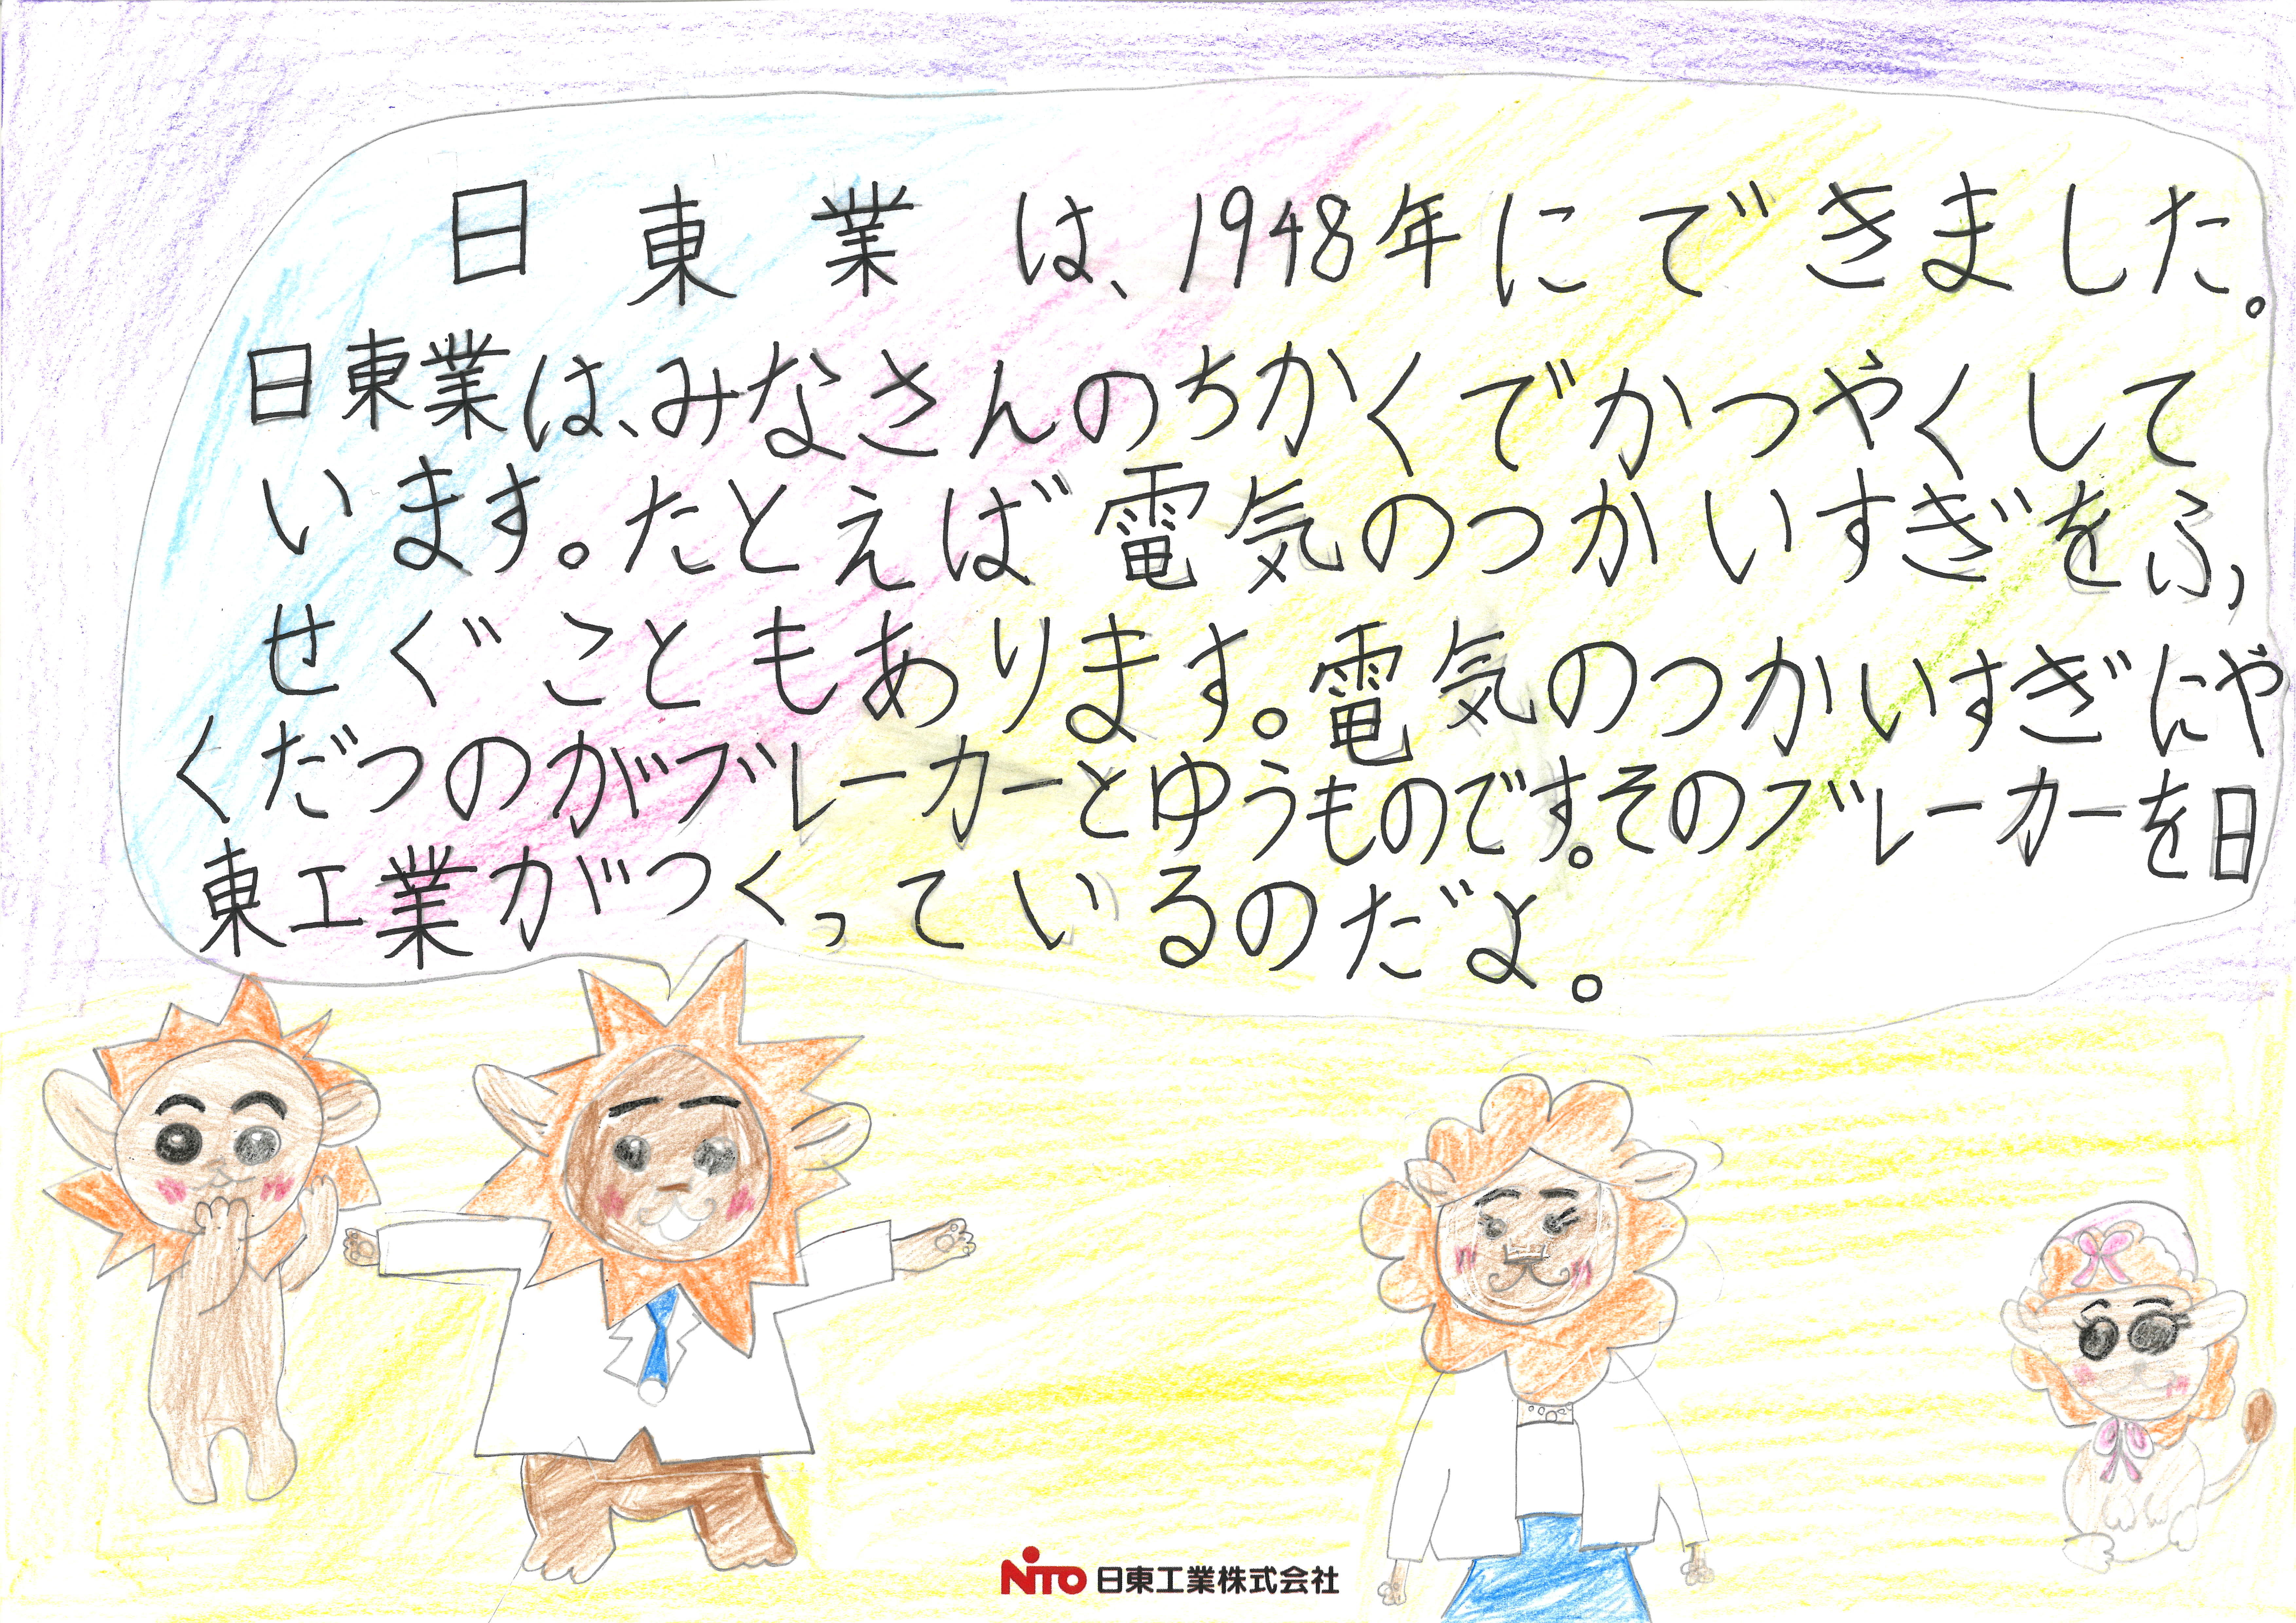 日東業は、1948年にできました。
日東業は、みなさんのちかくでかつやくして
います。たとえば電気のつかいすぎをふ,
せぐこともあります。電気のつかいすぎにや
くだつのがブレーカーとゆうものです。そのブレーカーを日
東工業がつくっているのだよ。
NITO 日東工業株式会社